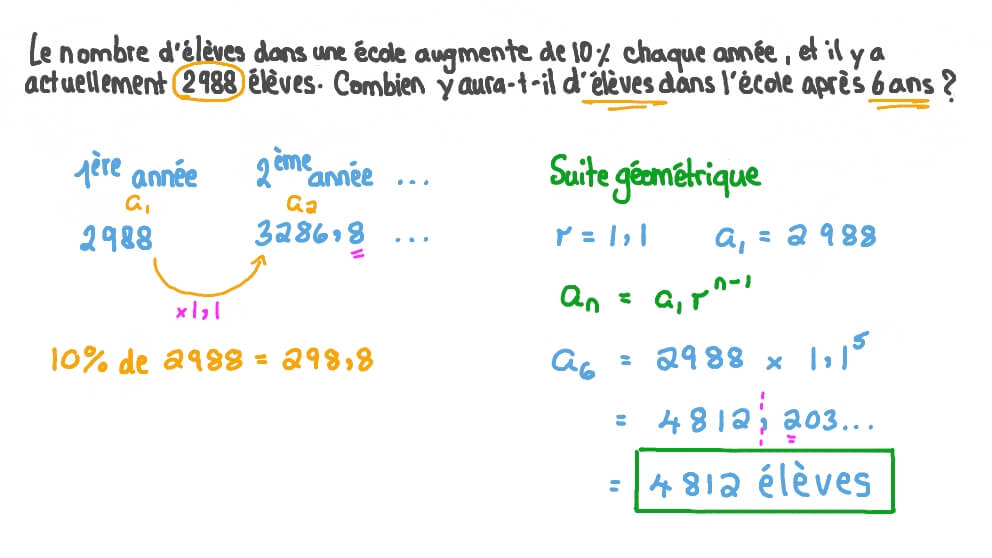 Le nombre d'élèves dans une école augmente de 10% chaque année, et il y a
actuellement 2988 élèves. Combien y aura-t-il d'élèves dans l'école après 6 ans ?
1ère année 2ème année ...
a₁ a₂
2988 3286,8 ...
×1,1
10% de 2988 = 298,8
Suite géométrique
r = 1,1 a₁ = 2988
aₙ = a₁rⁿ⁻¹
a₆ = 2988 × 1,1⁵
= 4812,203...
= 4812 élèves